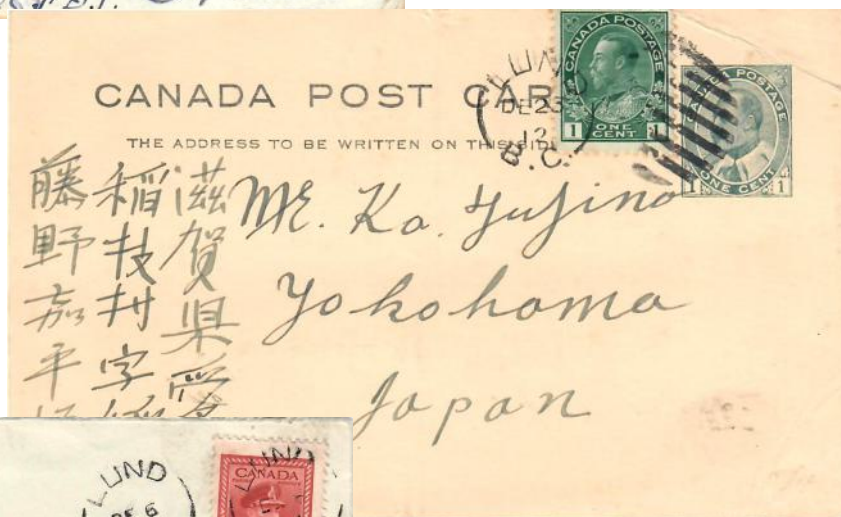 CANADA POST CARD
THE ADDRESS TO BE WRITTEN ON THIS SIDE
LUND
DE 23
12
B.C.
CANADA POSTAGE
1 ONE CENT 1
CANADA POSTAGE
1 ONE CENT 1
Mr. Ka. Fujino
Yokohama
Japan
滋賀県愛
稲枝村字
藤野嘉平
LUND
DE 6
LUND
CANADA